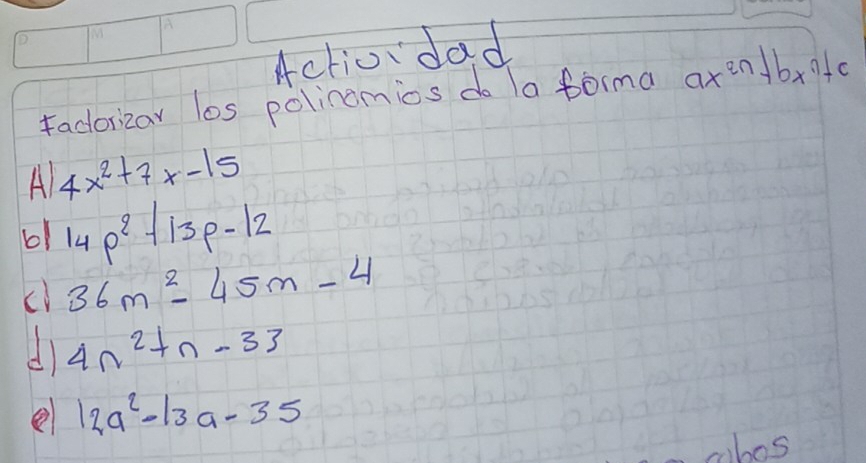 D M A
Actividad
Factorizar los polinomios de la forma ax²ⁿ+bxⁿ+c
A) 4x²+7x-15
b) 14p²+13p-12
c) 36m²-45m-4
d) 4n²+n-33
e) 12a²-13a-35